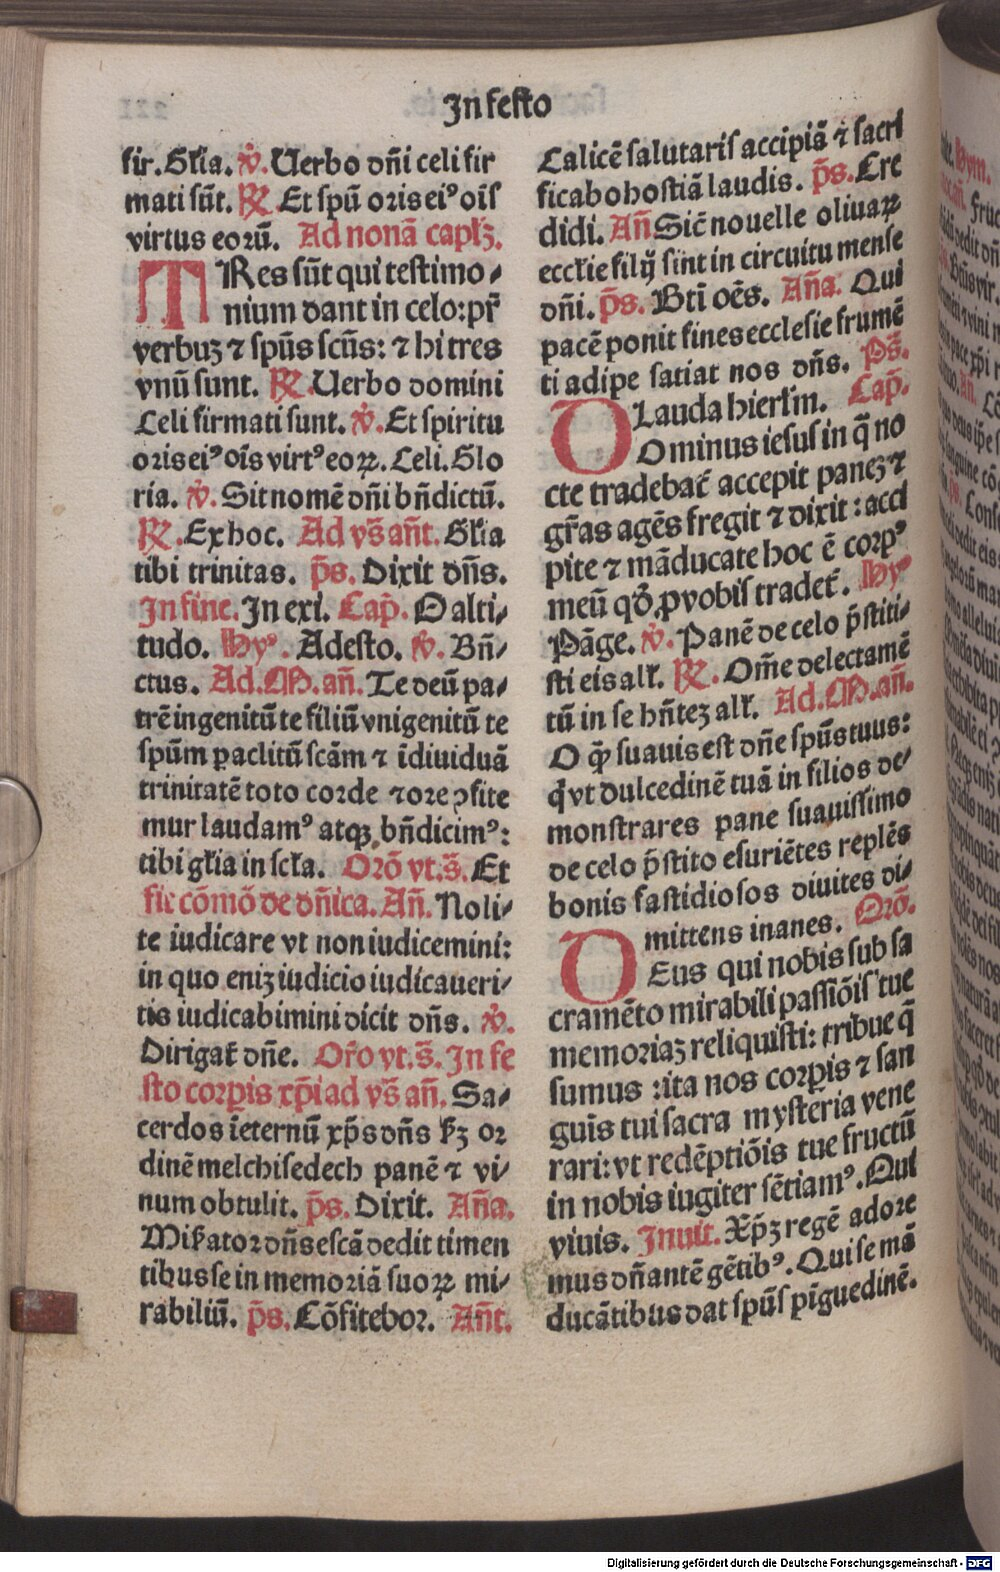 In festo
fir. Gl'ia. ꝟ. Uerbo dn̄i celi fir
mati sūt. ℞ Et spū oris eiꝰ oīs
virtus eorū. Ad nonā capl'ꝫ.
TRes sūt qui testimo⸗
nium dant in celo: pr̄
verbuꝫ ⁊ spūs scūs: ⁊ hi tres
vnū sunt. ℞. Uerbo domini
Celi firmati sunt. ꝟ. Et spiritu
oris eiꝰ oīs virtꝰ eoꝝ. Celi. Glo
ria. ꝟ. Sit nomē dn̄i bn̄dictū.
℞. Ex hoc. Ad vs̄ an̄t. Gl'ia
tibi trinitas. ps̄. Dixit dn̄s.
In fine. In exi. Cap̄. O alti⸗
tudo. Hyꝰ. Adesto. ꝟ. Bn̄⸗
ctus. Ad. M. an̄. Te deū pa⸗
trē ingenitū te filiū vnigenitū te
spūm paclitū scām ⁊ īdiuiduā
trinitatē toto corde ⁊ ore ꝯfite
mur laudamꝰ atqꝫ bn̄dicimꝰ:
tibi gl'ia in scl'a. Orō vt. s̄. Et
fit cōmō de dn̄ica. An̄. Noli⸗
te iudicare vt non iudicemini:
in quo eniꝫ iudicio iudicaueri⸗
tis iudicabimini dicit dn̄s. ꝟ.
Dirigat̄ dn̄e. Or̄o vt. s̄. In fe
sto corpꝑis xp̄i ad vs̄ an̄. Sa⸗
cerdos īeternū xp̄s dn̄s k'ꝫ or
dinē melchisedech panē ⁊ vi⸗
num obtulit. ps̄. Dixit. An̄a.
Mis̄ator dn̄s escā dedit timen
tibus se in memoriā suoꝝ mi⸗
rabiliū. ps̄. Cōfitebor. An̄t.
Calicē salutaris accipiā ⁊ sacri
ficabo hostiā laudis. ps̄. Cre
didi. An̄ Sic̄ nouelle oliuaꝝ
eccl'ie filij sint in circuitu mense
dn̄i. ps̄. Bt̄i oēs. An̄a. Qui
pacē ponit fines ecclesie frumē
ti adipe satiat nos dn̄s. Ps̄.
Lauda hierl'm. Cap̄.
DOminus iesus in q̄ no
cte tradebat̄ accepit paneꝫ ⁊
gr̄as agēs fregit ⁊ dixit: acci
pite ⁊ māducate hoc ē corpꝰ
meū qd̄ ꝓ vobis tradet̄. Hyꝰ
Pāge. ꝟ. Panē de celo p̄stiti⸗
sti eis all'. ℞. Om̄e delectamē
tū in se hn̄teꝫ all'. Ad. M. an̄.
O q̄ꝫ suauis est dn̄e spūs tuus:
q̇ vt dulcedinē tuā in filios de⸗
monstrares pane suauissimo
de celo p̄stito esuriētes replēs
bonis fastidiosos diuites di⸗
mittens inanes. Orō.
DEus qui nobis sub sa
cramēto mirabili passiōis tue
memoriaꝫ reliquisti: tribue q̄
sumus: ita nos corpꝑis ⁊ san
guīs tui sacra mysteria vene
rari: vt redēptiōis tue fructū
in nobis iugiter sētiamꝰ. Qui
viuis. Inuit. Xp̄ꝫ regē adore
mus dn̄antē gētibꝰ. Qui se mā
ducātibus dat spūs pīguedinē.
Digitalisierung gefördert durch die Deutsche Forschungsgemeinschaft - DFG